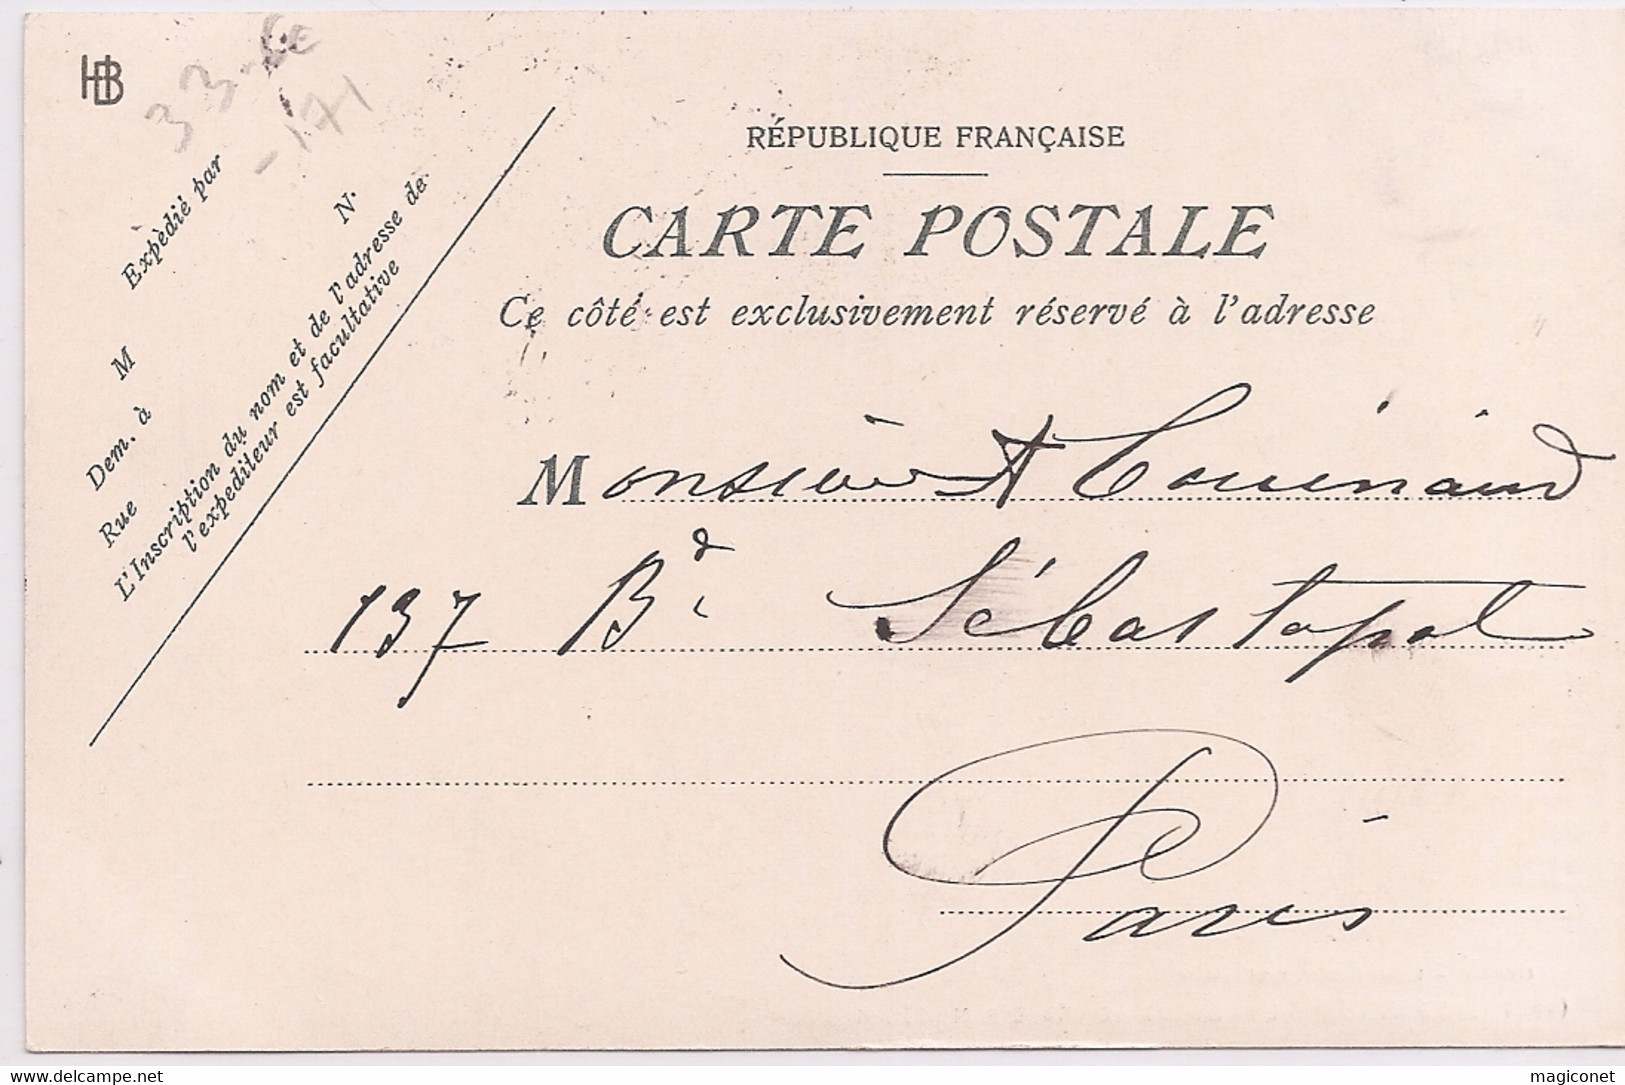 HB
33-CE
-171
RÉPUBLIQUE FRANÇAISE
CARTE POSTALE
Ce côté est exclusivement réservé à l'adresse
Expèdié par
N.
M
Dem. à
Rue
L'Inscription du nom et de l'adresse de
l'expediteur est facultative
Monsieur A
137 Bd Sébastopol
Paris
www.delcampe.net
magiconet